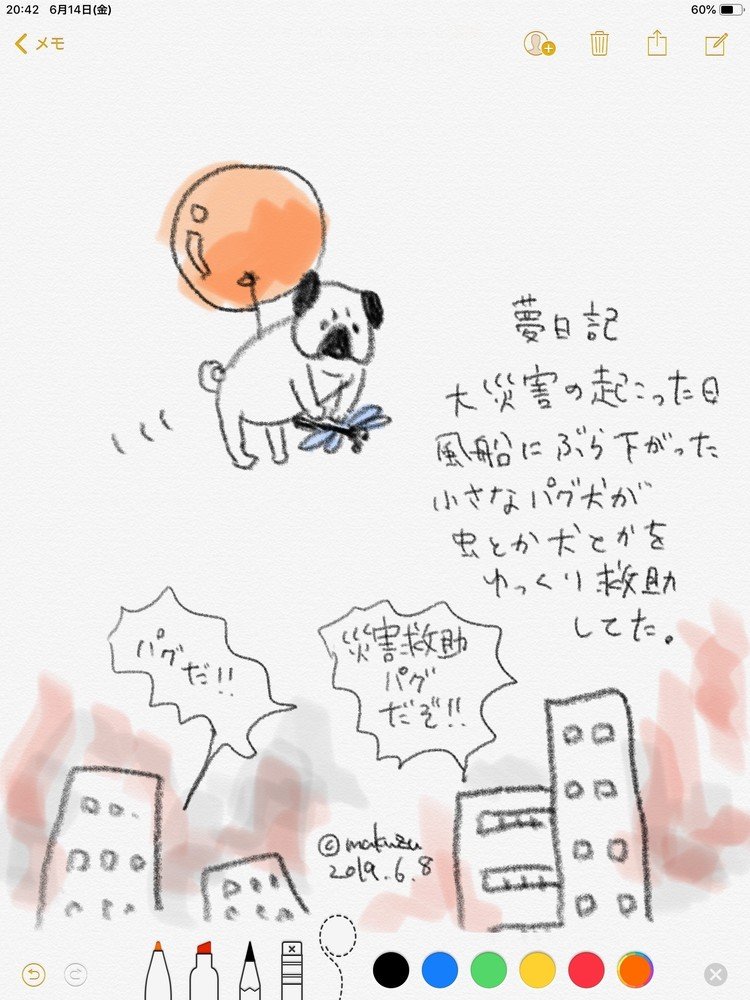 20:42 6月14日(金)
60%
メモ
夢日記
大災害の起こった日
風船にぶら下がった
小さなパグ犬が
虫とか犬とかを
ゆっくり救助
してた。
パグ
だ!!
災害救助
パグ
だぞ!!
©makuzu
2019.6.8